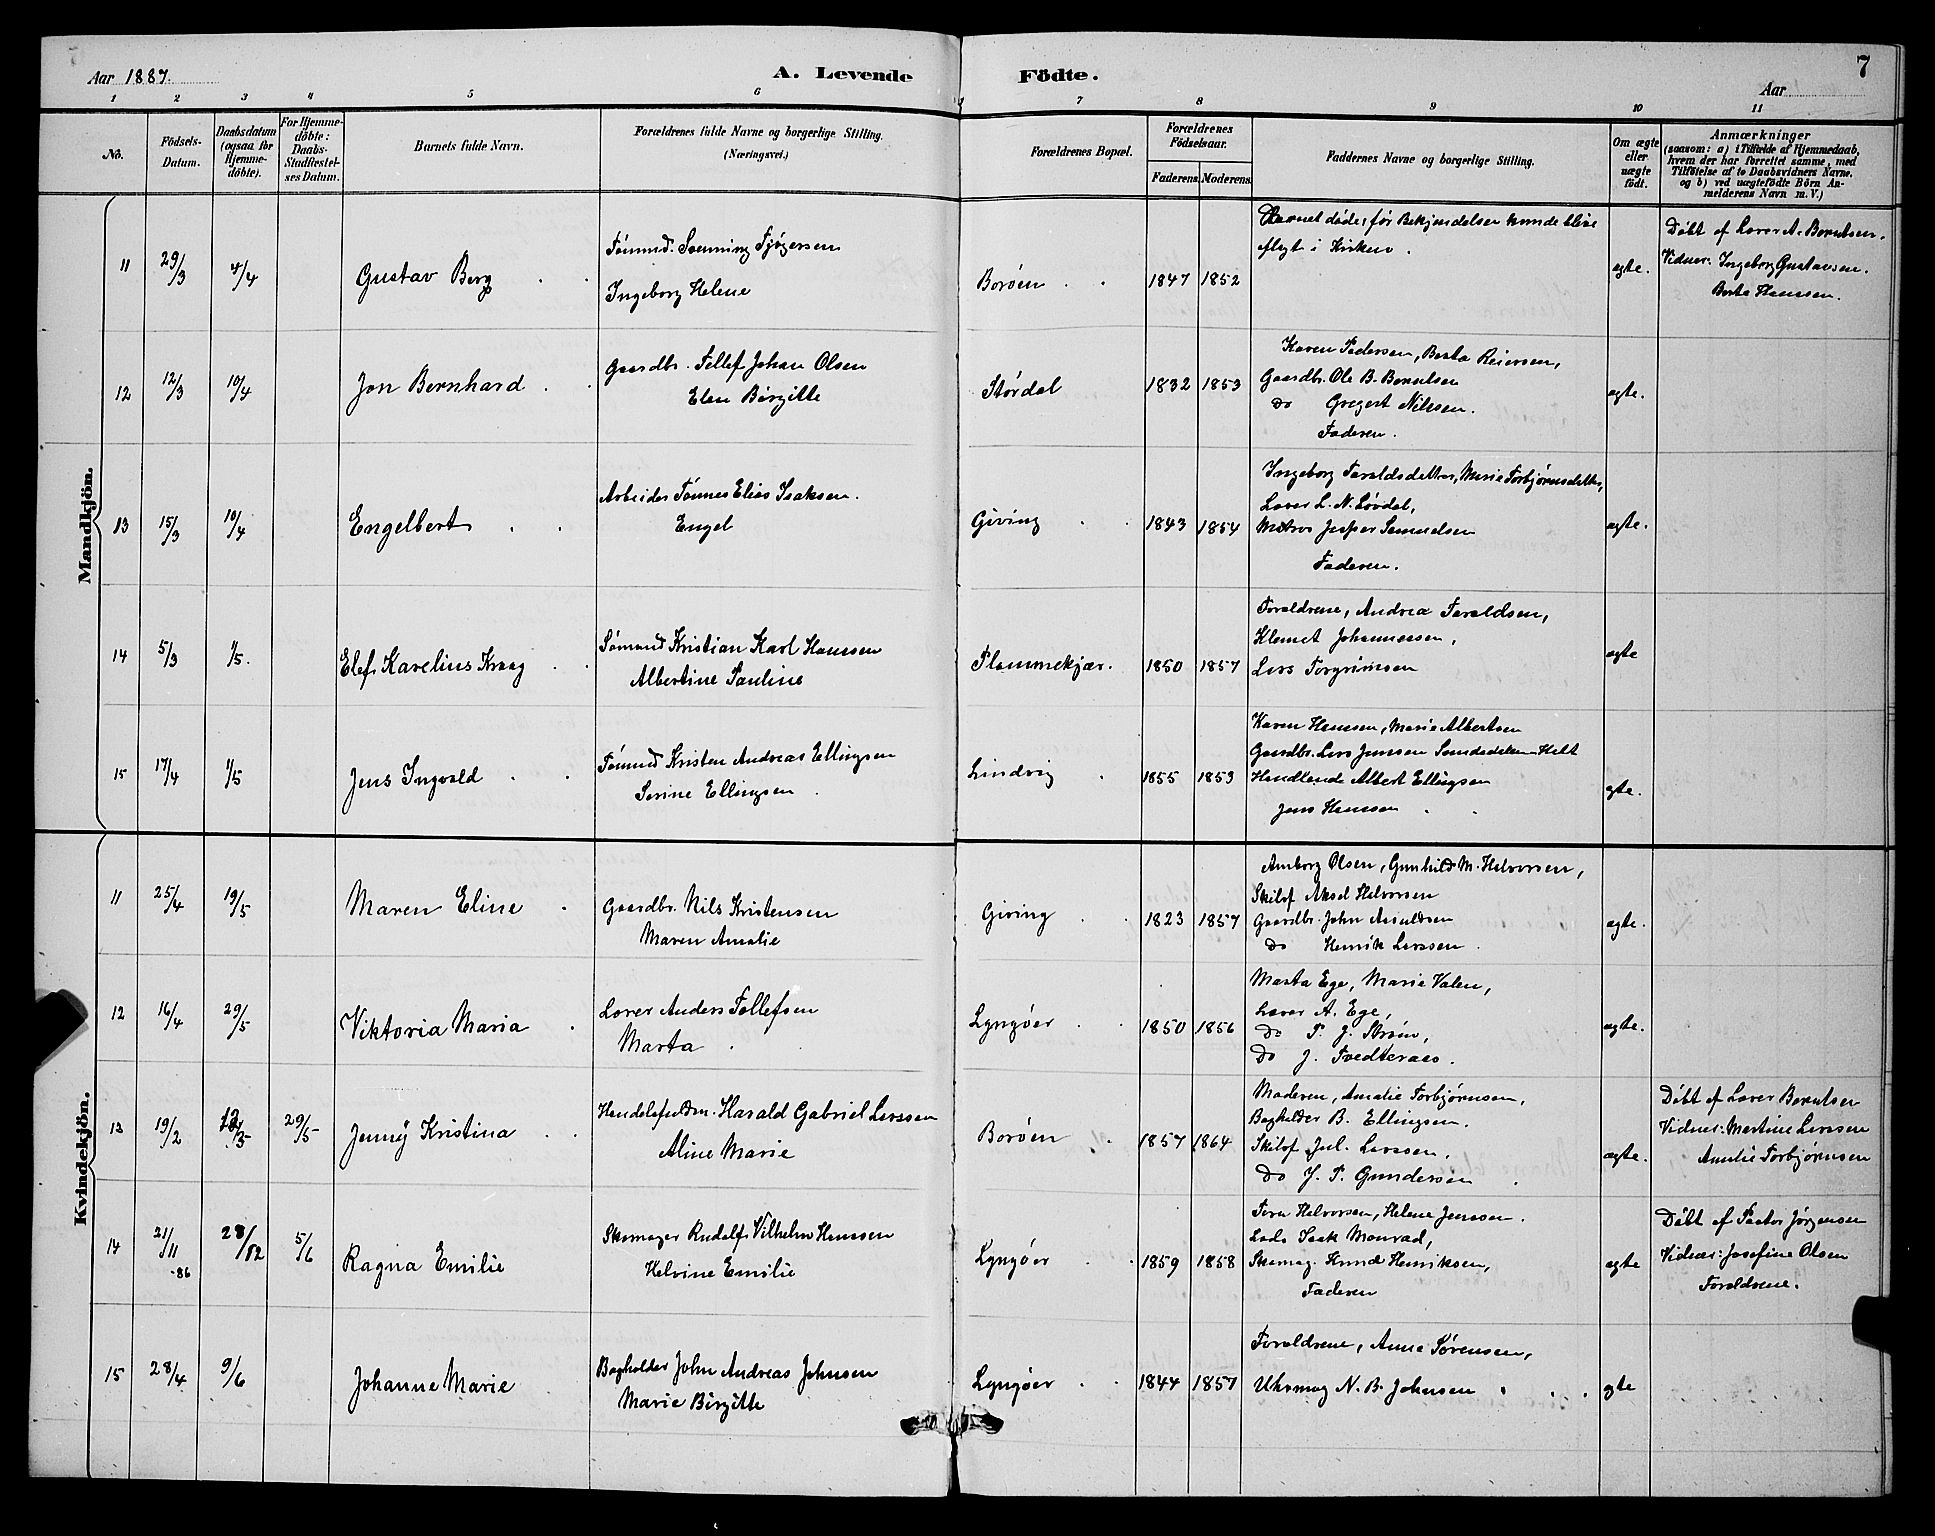 Aar 1887.
A. Levende Födte.
7
Aar
1 2 3 4 5 6 7 8 9 10 11
No.
Födsels-Datum.
Daabsdatum (ogsaa for Hjemmedöbte).
For Hjemmedöbte: Daabs-Stadfæstelses Datum.
Barnets fulde Navn.
Forældrenes fulde Navne og borgerlige Stilling. (Næringsvei.)
Forældrenes Bopæl.
Forældrenes Födselsaar.
Faderens Moderens
Faddernes Navne og borgerlige Stilling.
Om ægte eller uægte födt.
Anmærkninger (saasom: a) i Tilfælde af Hjemmedaab, hvem der har forrettet samme, med Tilföielse af to Daabsvidners Navne, og b) ved uægtefödte Börn Anmelderens Navn m.V.)
Mandkjön.
11 29/3 4/4 Gustav Berg
Sømand
Ingeborg Helene
Borøen 1847 1852
Barnet døde, før Bekjendelsen kunde blive
aflagt i Kirken.
ægte.
Døbt af Lærer A. Berntsen.
Vidner: Ingeborg Gustavsen.
Berte Hanssen.
12 12/3 10/4 Jon Bernhard
Gaardbr. Tellef Johan Olsen
Elen Birgitte
Størdal 1832 1853
Karen Pedersen, Berta Reiersen,
Gaardbr. Ole B. Berntsen
Do Gregert Nilssen.
Faderen.
ægte.
13 15/3 10/4 Engelbert
Arbeider Tønnes Elias Isaksen.
Engel
Giving 1843 1854
Ingeborg Taraldsdatter, Marie Torbjørnsdatter,
Lærer L. N. Løvdal,
Matros Jesper Samuelsen
Faderen.
ægte.
14 5/3 1/5. Elef Karelius Kraag
Sømand Kristian Karl Hanssen
Albertine Pauline
Plommekjær. 1850 1857
Forældrene, Andrea Taraldsen,
Klemet Johannessen,
Lars Torgrimsen
ægte
15 17/4 1/5 Jens Ingvald
Sømand Kristen Andreas Ellingsen
Serine Ellingsen
Lindvig 1855 1853
Karen Hanssen, Marie Albertsen
Gaardbr. Lars Jenssen
Handlende Albert Ellingsen
Jens Hanssen
ægte.
Kvindekjön.
11 25/4 19/5 Maren Eline
Gaardbr. Nils Kristensen
Maren Amalie
Giving 1823 1857
Anborg Olsen, Gunhild M. Halvorsen,
Skibsf. Aksel Halvorsen
Gaardbr. John
Do Henrik Larssen.
ægte.
12 16/4 29/5 Viktoria Maria
Lærer Anders Tellefsen
Marta
Lyngøer 1850 1856
Marta Ege, Marie Valen,
Lærer A. Ege,
Do P. J. Strøm,
Do J. Tvedteraas.
ægte.
13 19/2 12/3 29/5 Jenny Kristina
Handelsfuldm. Harald Gabriel Larssen
Aline Marie
Borøen 1857 1864
Moderen, Amalie Torbjørnsen,
Bogholder B. Ellingsen.
Skibsf. Jul. Larssen,
Do J. P. Gundersen
ægte.
Døbt af Lærer Berntsen
Vidner: Martine Larssen
Amalie Torbjørnsen
14 21/11 -86 28/12 5/6 Ragna Emilie
Skomager Rudolf Vilhelm Hanssen
Helvine Emilie
Lyngøer 1859 1858
Tora Halvorsen, Helene Jenssen.
Lods Isak Monrad,
Skomag. Knud Henriksen,
Faderen
ægte
Døbt af Pastor Jørgensen
Vidner: Josefine Olsen
Forældrene.
15 28/4 9/6 Johanne Marie
Bogholder John Andreas Johnsen
Marie Birgitte
Lyngøer 1844 1857
Forældrene, Anne Sørensen,
Uhrmag. N. B. Johnsen
ægte